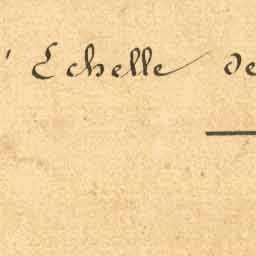 ' Echelle de